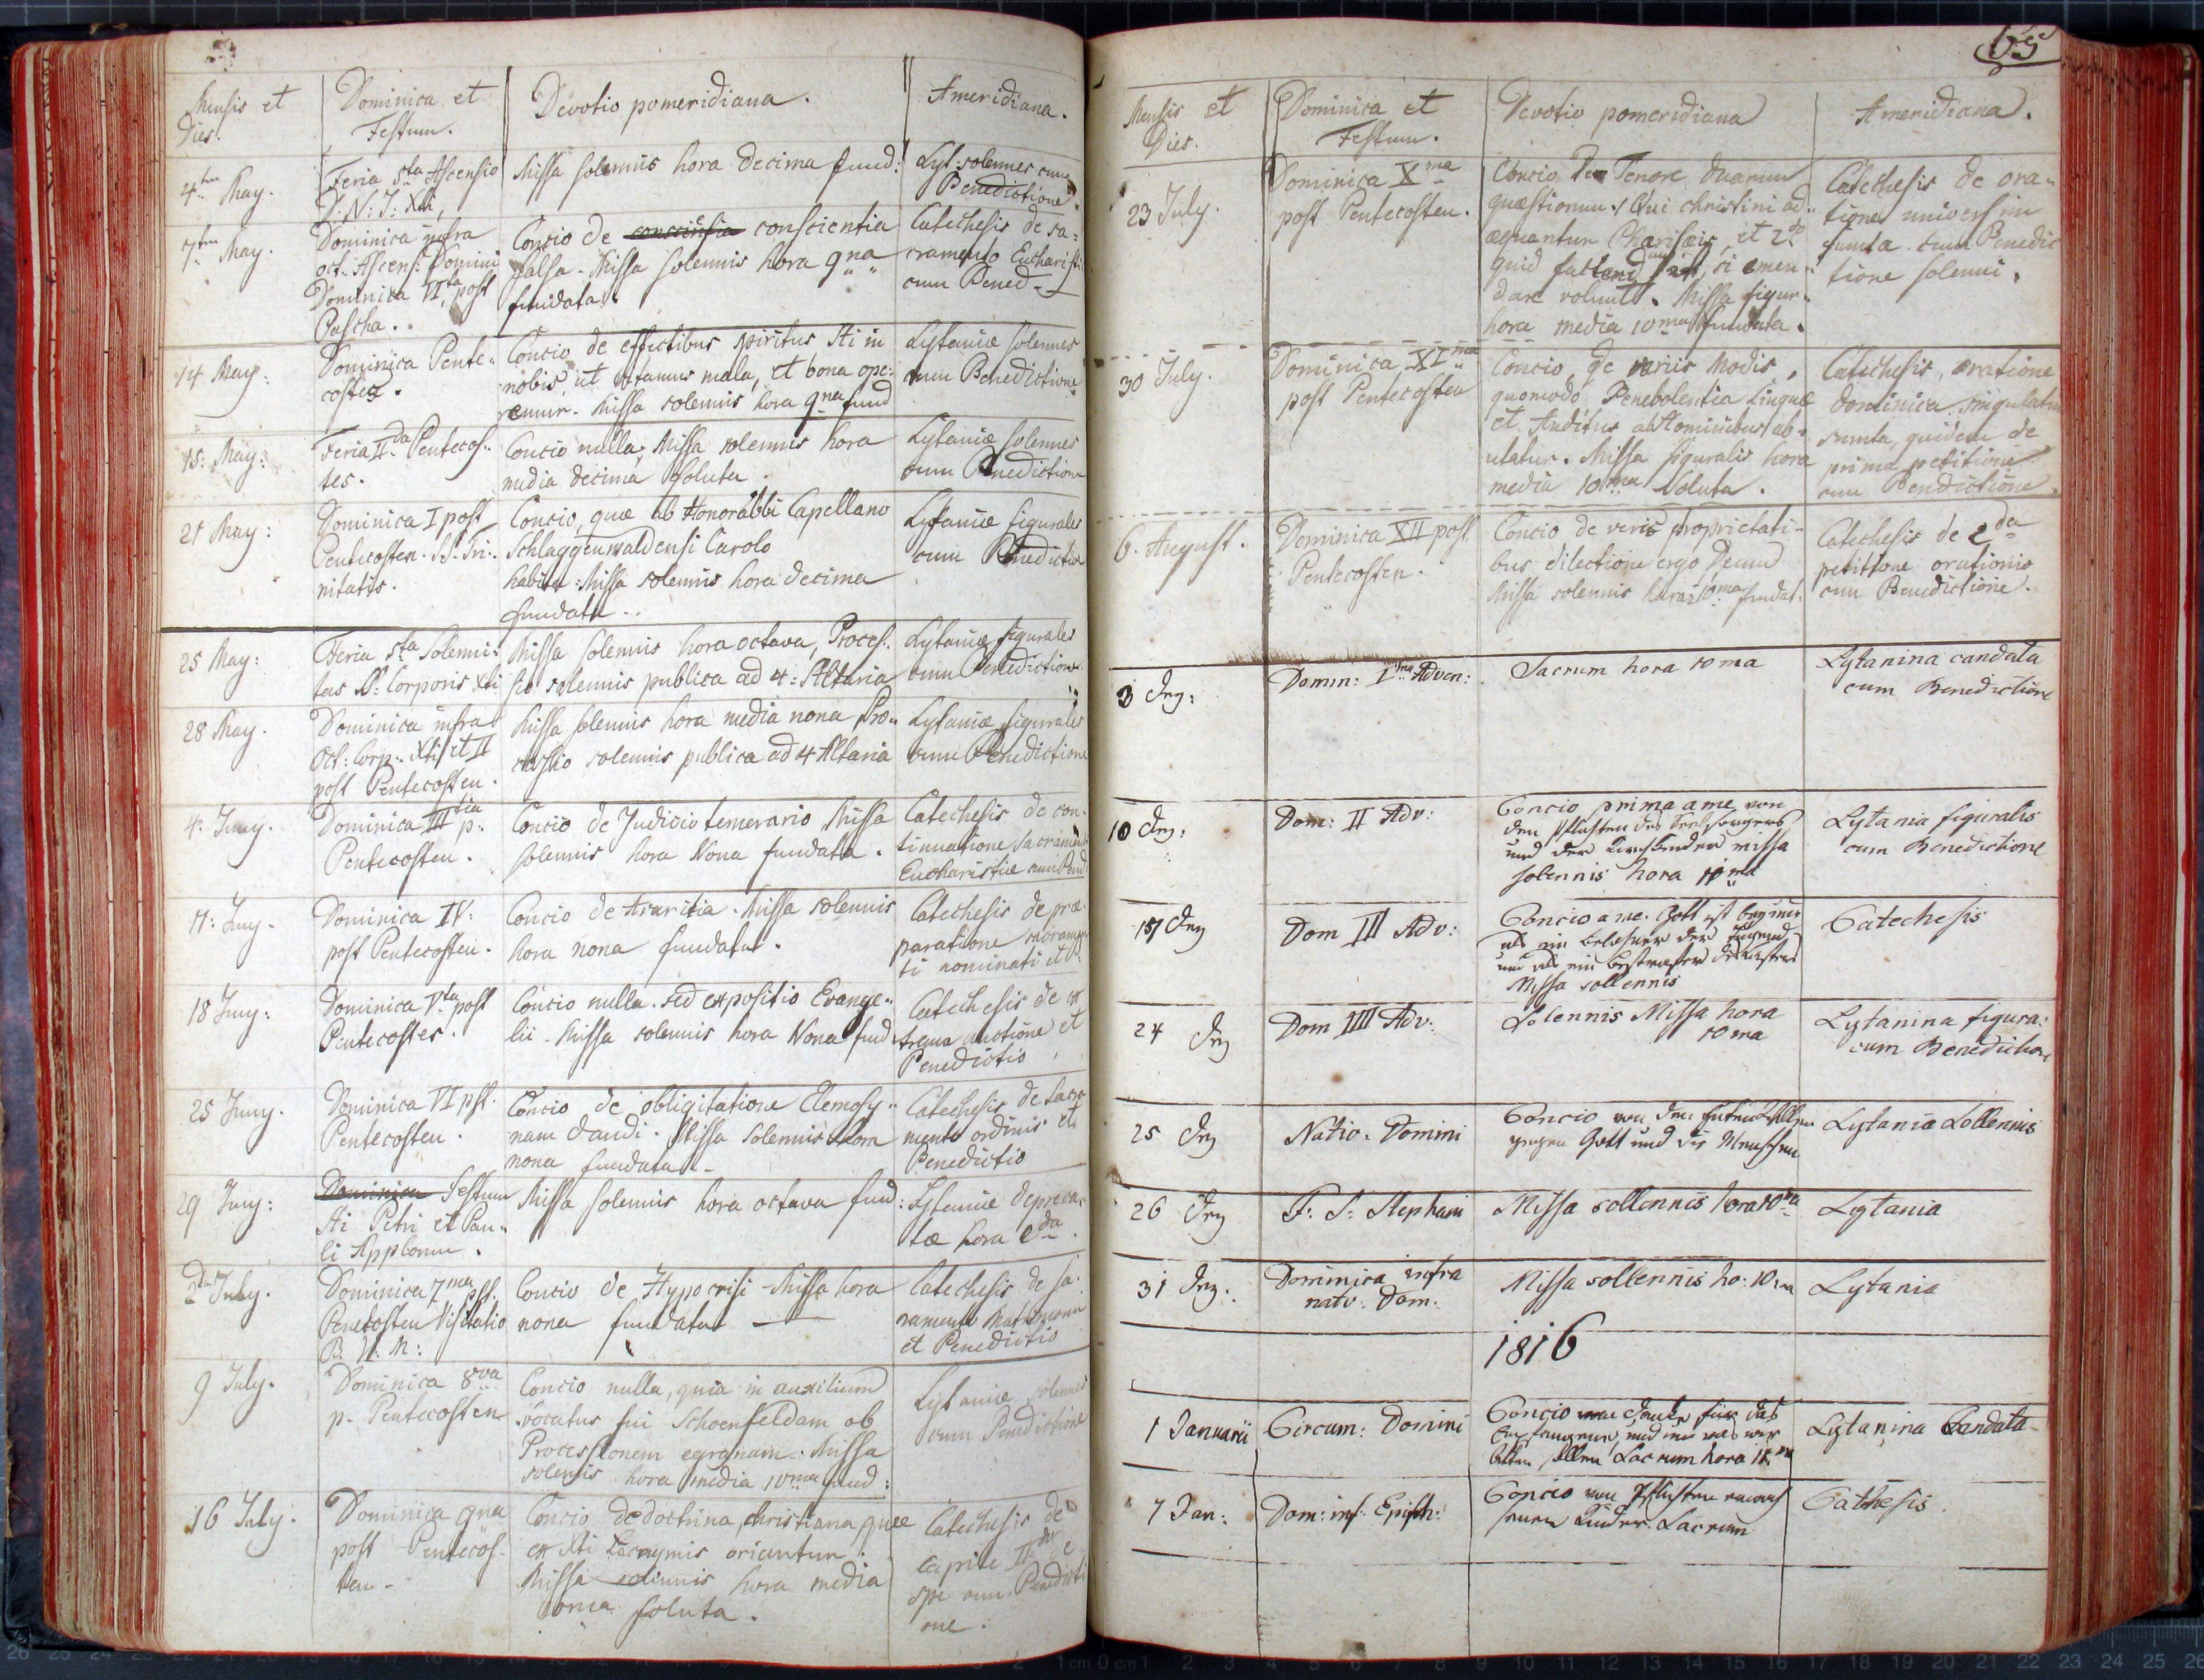 Mensis et
Dies.
Dominica et
Festum.
Devotio pomeridiana.
Ameridiana.
4ten May.
Feria 5ta Ascensio
D: N: J: Xti,
Missa solemnis hora decima fund:
Lyt: solennes cum
Benedictione.
7ten May.
Dominica infra
oct. Ascens: Domini
Dominica VIta post
Pascha.
Concio de conscientia
falsa. Missa solemnis hora 9na
fundata.
Catechesis de sa=
cramento Eucharisti
cum Bened
14 May.
Dominica Pente„
costes.
Concio de effectibus spiritus Sti in
nobis, ut vitamus mala, et bona ope:
remur. Missa solemnis hora 9na fund
Lytaniæ solennes
cum Benedictione
15: May:
Feria IIda Pentecos„
tes.
Concio nulla, Missa solemnis hora
media decima soluta.
Lytaniæ solennes
cum Benedictione
21 May:
Dominica I post
Pentecosten. SS. Tri„
nitatis.
Concio, quæ ab Honorabbi Capellano
Schlaggenwaldensi Carolo
habita: Missa solemnis hora decima
fundata..
Lytaniæ figurales
cum Benedictione
25 May:
Feria 5ta Solemni:
tas SS: Corporis Xti
Missa solemnis hora octava, Proces„
sio solemnis publica ad 4: Altaria
Lytaniæ figurales
cum Benedictione
28 May.
Dominica infra
Oct: Corp: Xti, et II
post Pentecosten.
Missa solemnis hora media nona, Pro„
cessio solemnis publica ad 4 Altaria
Lytaniæ figurales
cum Benedictione
4. Juny.
Dominica IIItia p:
Pentecosten.
Concio de Judicio temerario, Missa
solemnis hora Nona fundata.
Catechesis de con„
tinuatione Sacrament
Eucharistiæ cum Bened:
11: Juny.
Dominica IV:
post Pentecosten.
Concio de Avaritia. Missa solemnis
hora nona fundata.
Catechesis de præ„
paratione sacramen
ti nominati et B:
18 Juny:
Dominica Vta post
Pentecostes.
Concio nulla. sed expositio Evange„
lii. Missa solemnis hora Nona fund
Catechesis de ex
trema unctione et
Benedictio
25 Juny.
Dominica VI pst.
Pentecosten.
Concio de obligitatione Elemosy„
nam dandi. Missa Solemnis hora
nona fundata.
Catechesis de Sacra
mento ordinis et
Benedictio
29 Juny:
Dominica Festum
Sti Petri et Pau„
li Applorum.
Missa solemnis hora octava fund:
Lytaniæ depreca„
tæ hora 2da.
2da July.
Dominica 7ma pst.
Pentecosten Visitatio
B. V. M:
Concio de Hypocrisi - Missa hora
nona fundata
Catechesis de Sa„
cramento Matrimonii
et Benedictio
9 July.
Dominica 8va
p. Pentecosten
Concio nulla, quia in auxilium
vocatus fui Schoenfeldam ob
Processionem egranam. Missa
solemnis hora media 10ma fund:
Lytaniæ solennes
cum Benedictione
16 July.
Dominica 9na
post Pentecos„
ten -
Concio de doctrina christiana quæ
ex Xti Lacrymis oriuntur.
Missa solemnis hora media
10ma soluta.
Catechesis de
capite IIdo e
spe cum Benedicti
one.
65
Mensis et
Dies.
Dominica et
Festum.
Devotio pomeridiana
Ameridiana.
23 July.
Dominica Xma
post Pentecosten.
Concio De Tenore duarum
quæstionum / Qui christini ad„
æquantur Pharisæis, et 2do
quid faciend sit, si emen„
dare volunt. Missa figur„
hora media 10ma fundata.
Catechesis de ora„
tione universim
sumta cum Benedic
tione solemni.
30 July.
Dominica XIma
post Pentecosten
Concio, de variis Modis,
quomodo Benebolentia Linguæ
et Auditus ab Hominibus ab„
utatur. Missa figuralis hora
media 10ma soluta.
Catechesis, oratione
dominica singulatim
sumta, quidem de
prima petitione
cum Benedictione.
6. August.
Dominica XII post
Pentecosten.
Concio de veris proprietati„
bus dilectione ergo Deum
Missa solemnis hora 10ma fundat:
Catechesis de 2da
petitione orationis
cum Benedictione.
3 Dez:
Domin: Ima Adven:
Sacrum hora 10ma
Lytanina candata
cum Benedictione
10 Dez:
Dom: II Adv:
Concio prima a me von
den Pflichten des Seelsorgers
und der Kirchkinder missa
solennis hora 10ma
Lytania figuralis
cum Benedictione
17 Dez
Dom III Adv:
Concio a me. Gott ist bey mir
als ein Belohner der Tugend
und als ein Bestrafer des Lasters
Missa sollennis
Catechesis
24 Dez
Dom IIII Adv:
Solennis Missa hora
10ma
Lytanina figura:
cum Benedictione
25 Dez
Nativ. Domini
Concio von den guten Willen
gegen Gott und die Menschen
Lytaniæ Sollennis
26 Dez
F. S. Stephani
Missa sollennis hora 10ma
Lytania
31 Dez.
Dominica infra
nativ: Dom:
Missa sollennis ho: 10ma
Lytania
1816
1 Januarii
Circum: Domini
Concio von Danke für das
Empfangene, und um was wir
bitten sollen Sacrum hora 10ma
Lytanina Candata
7 Jan:
Dom: inf: Epiph:
Concio von Pflichten erwach
senen Kinder. Sacrum
Cathesis.